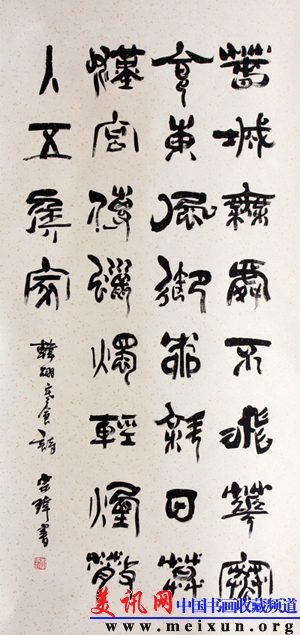 春城無處不飛華寒
食東風御柳斜日暮
漢宮傳蠟燭輕煙散
入五侯家
韓翃寒食詩 書
美讯网 中国书画收藏频道
www.meixun.org